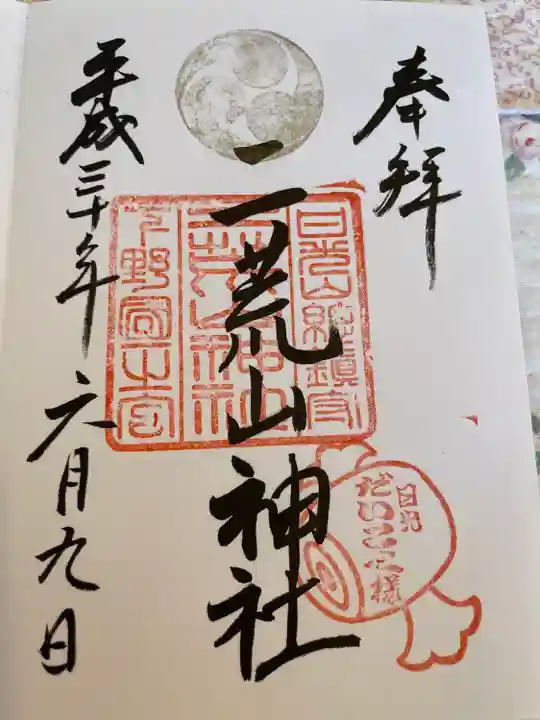 奉拝
日光山総鎮守
二荒山神社
二荒山神社
下野國一之宮
日光
だいこく様
平成三十年六月九日